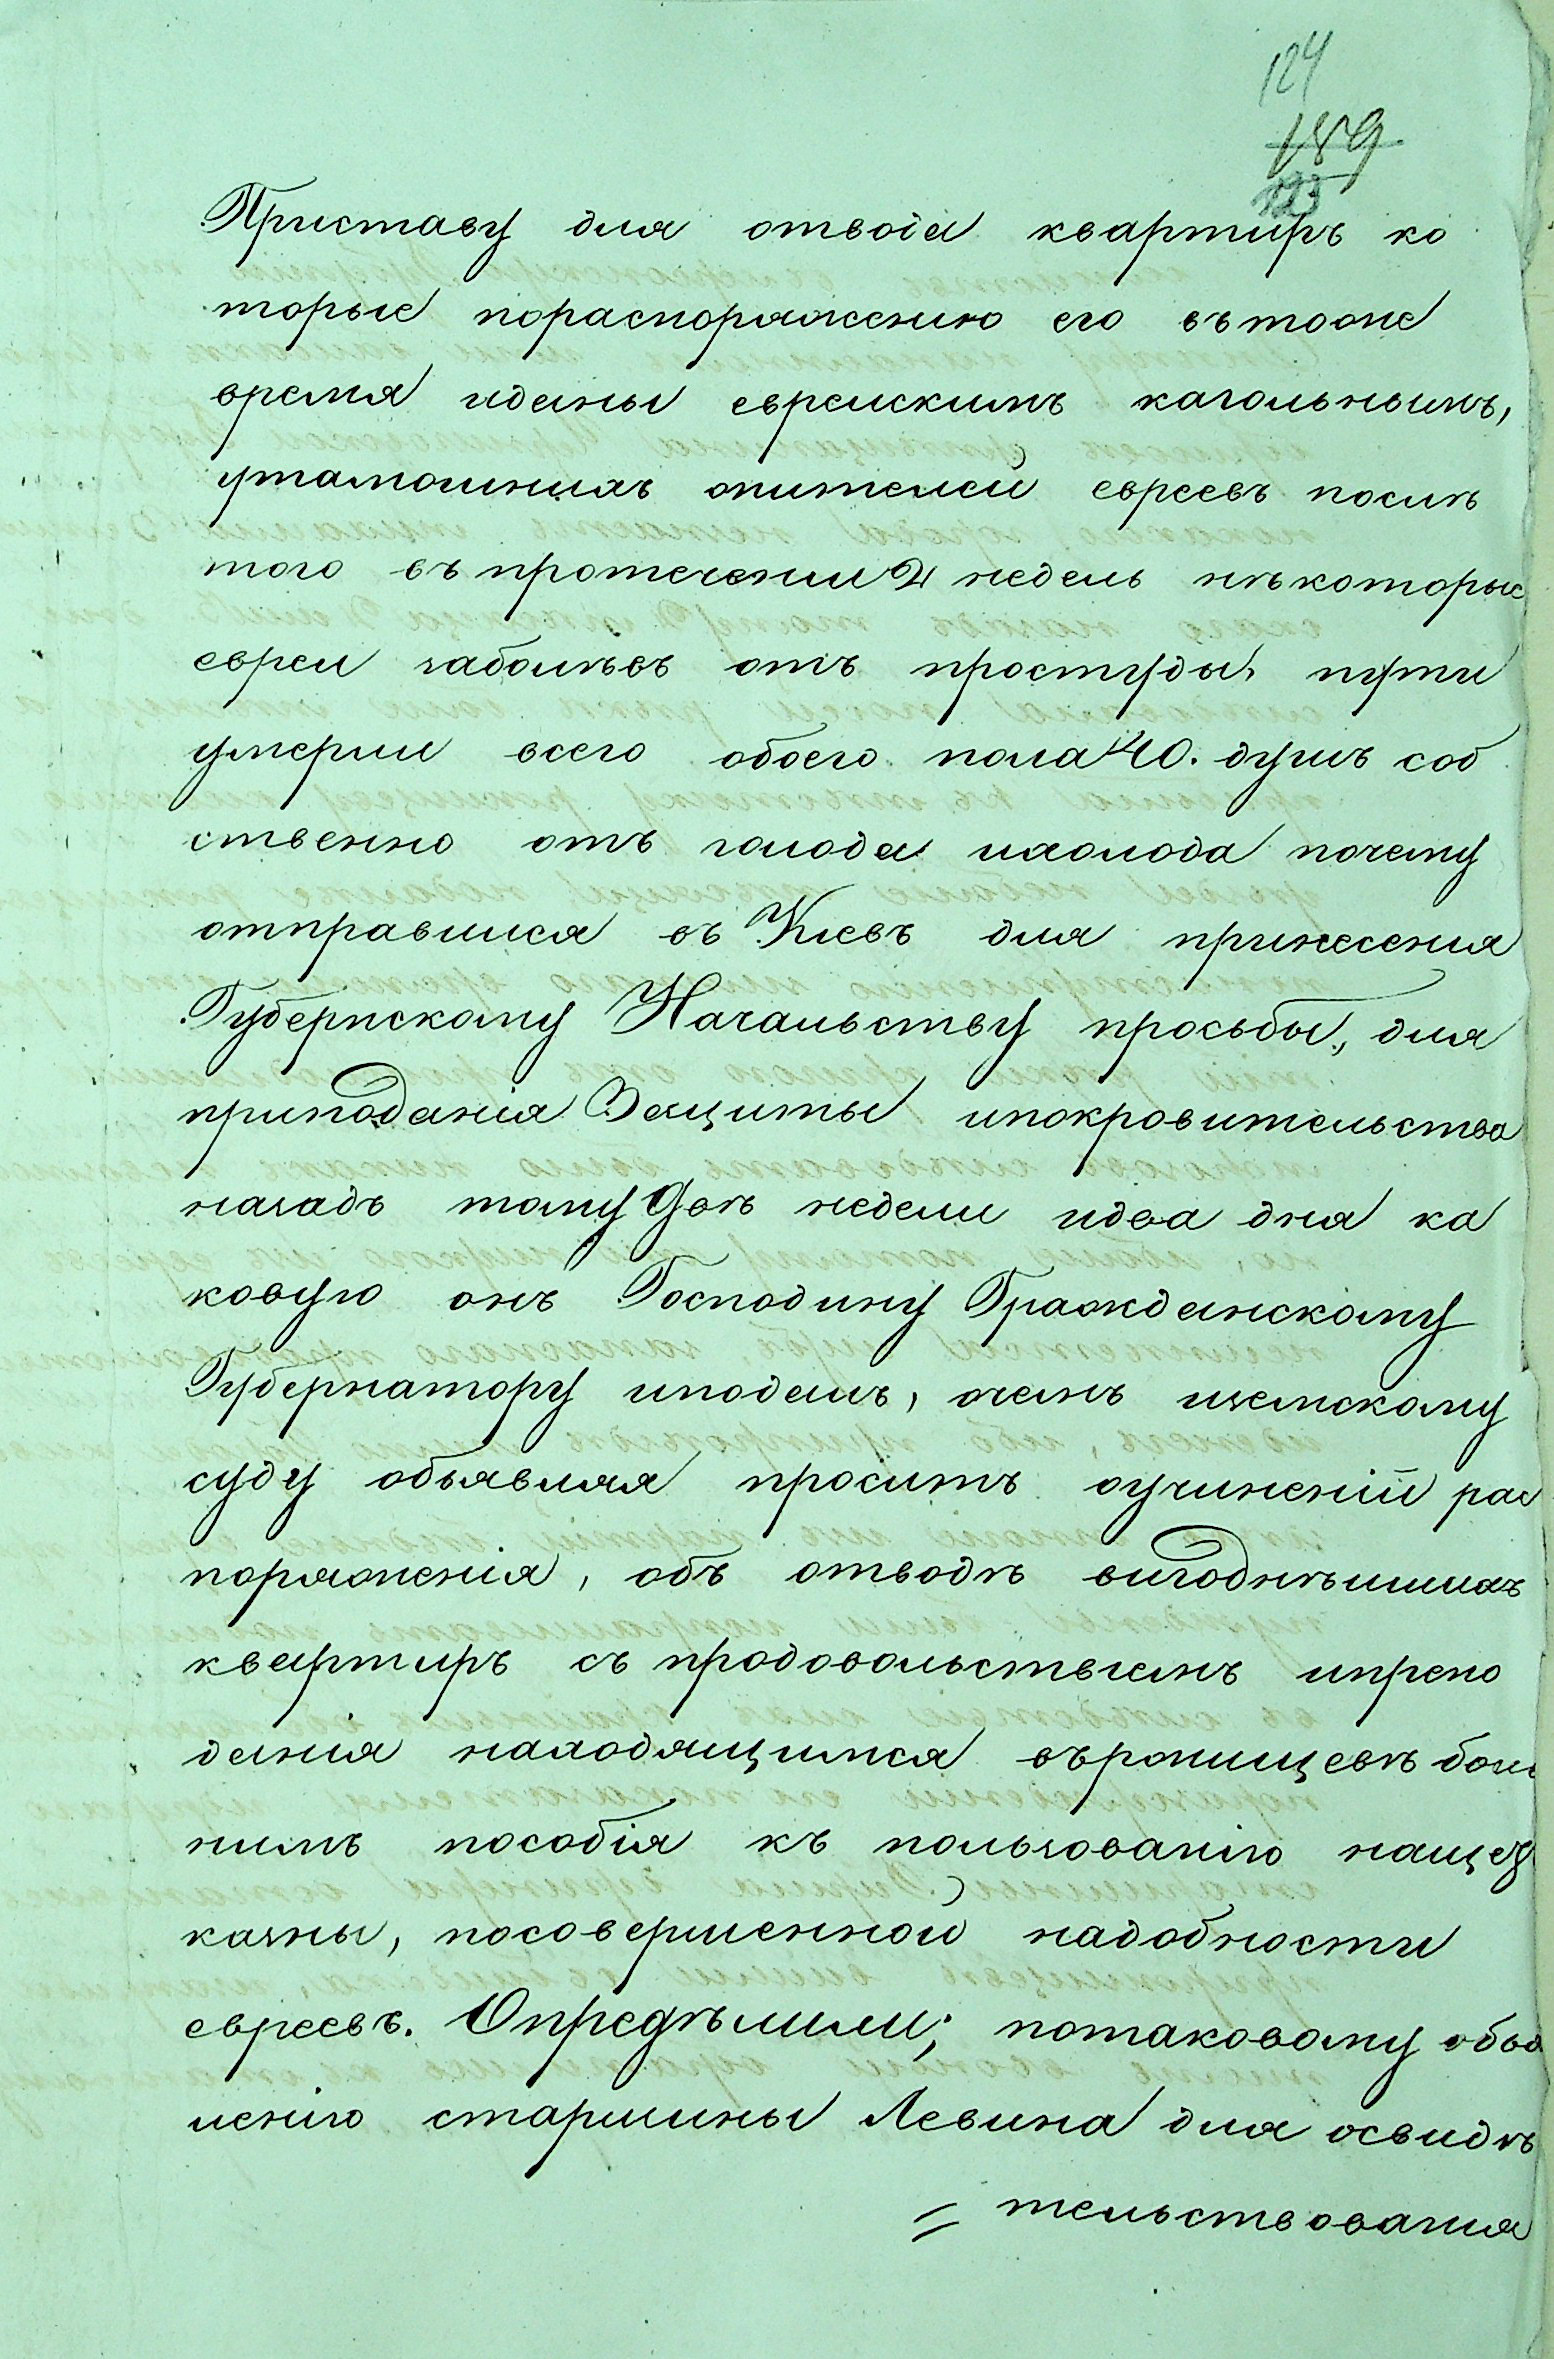 124
189
123
Приставу для отвода квартиръ ко
торые пораспоряженію его въ тоже
время иданы еврейскимъ кагольнымъ,
утамошнихъ жителей евреевъ после
того въ протечении 2 недель нѣкоторые
евреи заболѣвъ отъ простуды, пути
умерли всего обоего пола 40. душъ соб
ственно отъ голода ихолода почему
отправился въ Киевъ для принесения
Губернскому Начальству просьбы, для
приподанія Защиты ипокровительства
назадъ тому Двѣ недели идва дня ка
ковую онъ Господину Гражданскому
Губернатору иподалъ, очемъ иземскому
суду объявляя проситъ оучиненіи рас
поряженія, объ отводѣ выгоднѣишихъ
квартиръ съ продовольствиемъ ипрепо
данія находящимся вържищевѣ боль
нымъ пособія къ пользованію нащетъ
казны, посовершенной надобности
евреевъ. Опредѣлили; потаковому объяв
ленію старшины Левина для освидѣ
= тельствования